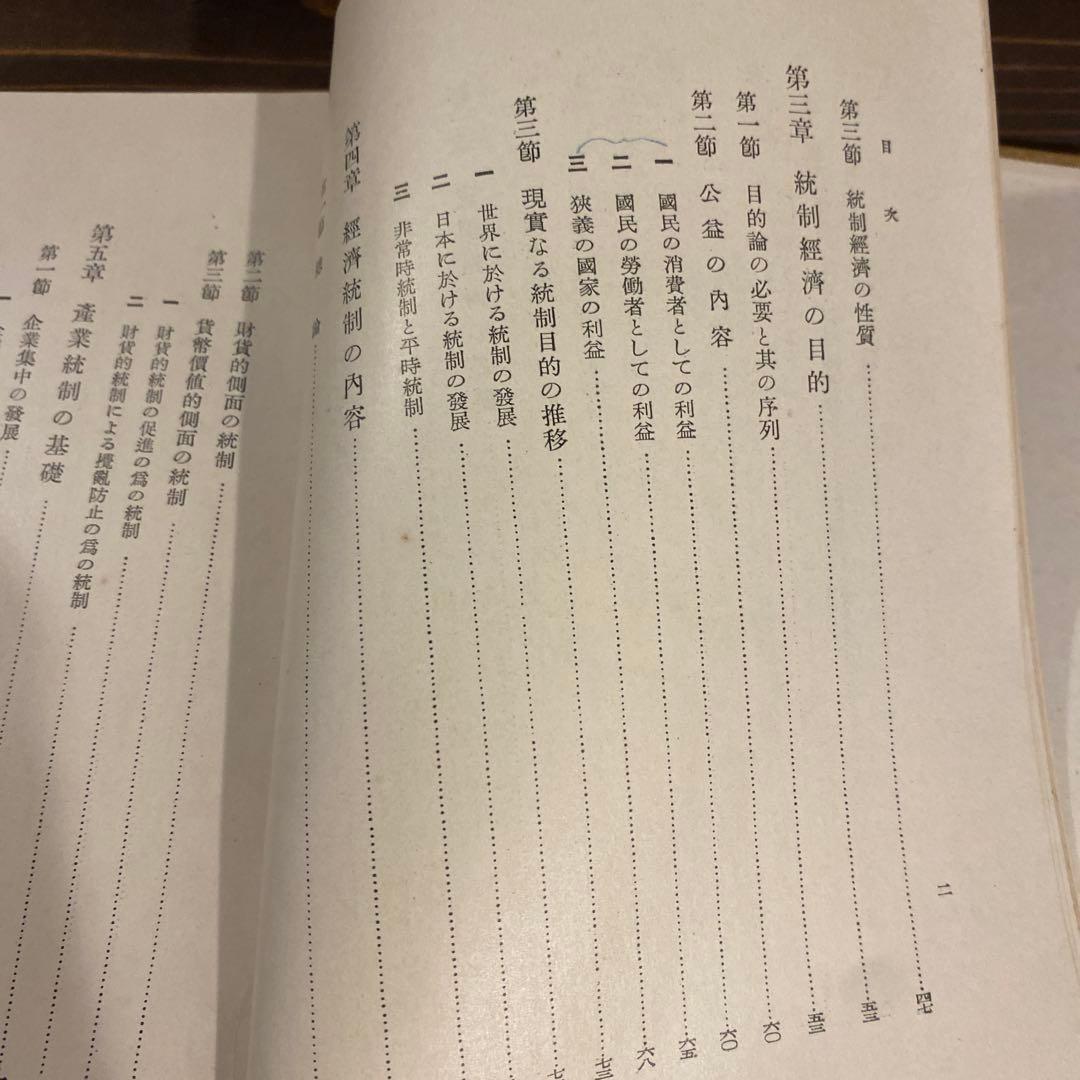 目次
二
第三節 統制經濟の性質……四七
第三章 統制經濟の目的……五三
第一節 目的論の必要と其の序列……五三
第二節 公益の內容……六〇
一 國民の消費者としての利益……六〇
二 國民の勞働者としての利益……六五
三 狹義の國家の利益……六八
第三節 現實なる統制目的の推移……七三
一 世界に於ける統制の發展……七
二 日本に於ける統制の發展……
三 非常時統制と平時統制……
第四章 經濟統制の內容……
論……
第二節 財貨的側面の統制……
第三節 貨幣價値的側面の統制……
一 財貨的統制の促進の爲の統制……
二 財貨的統制による攪亂防止の爲の統制……
第五章 產業統制の基礎……
第一節 企業集中の發展……
一